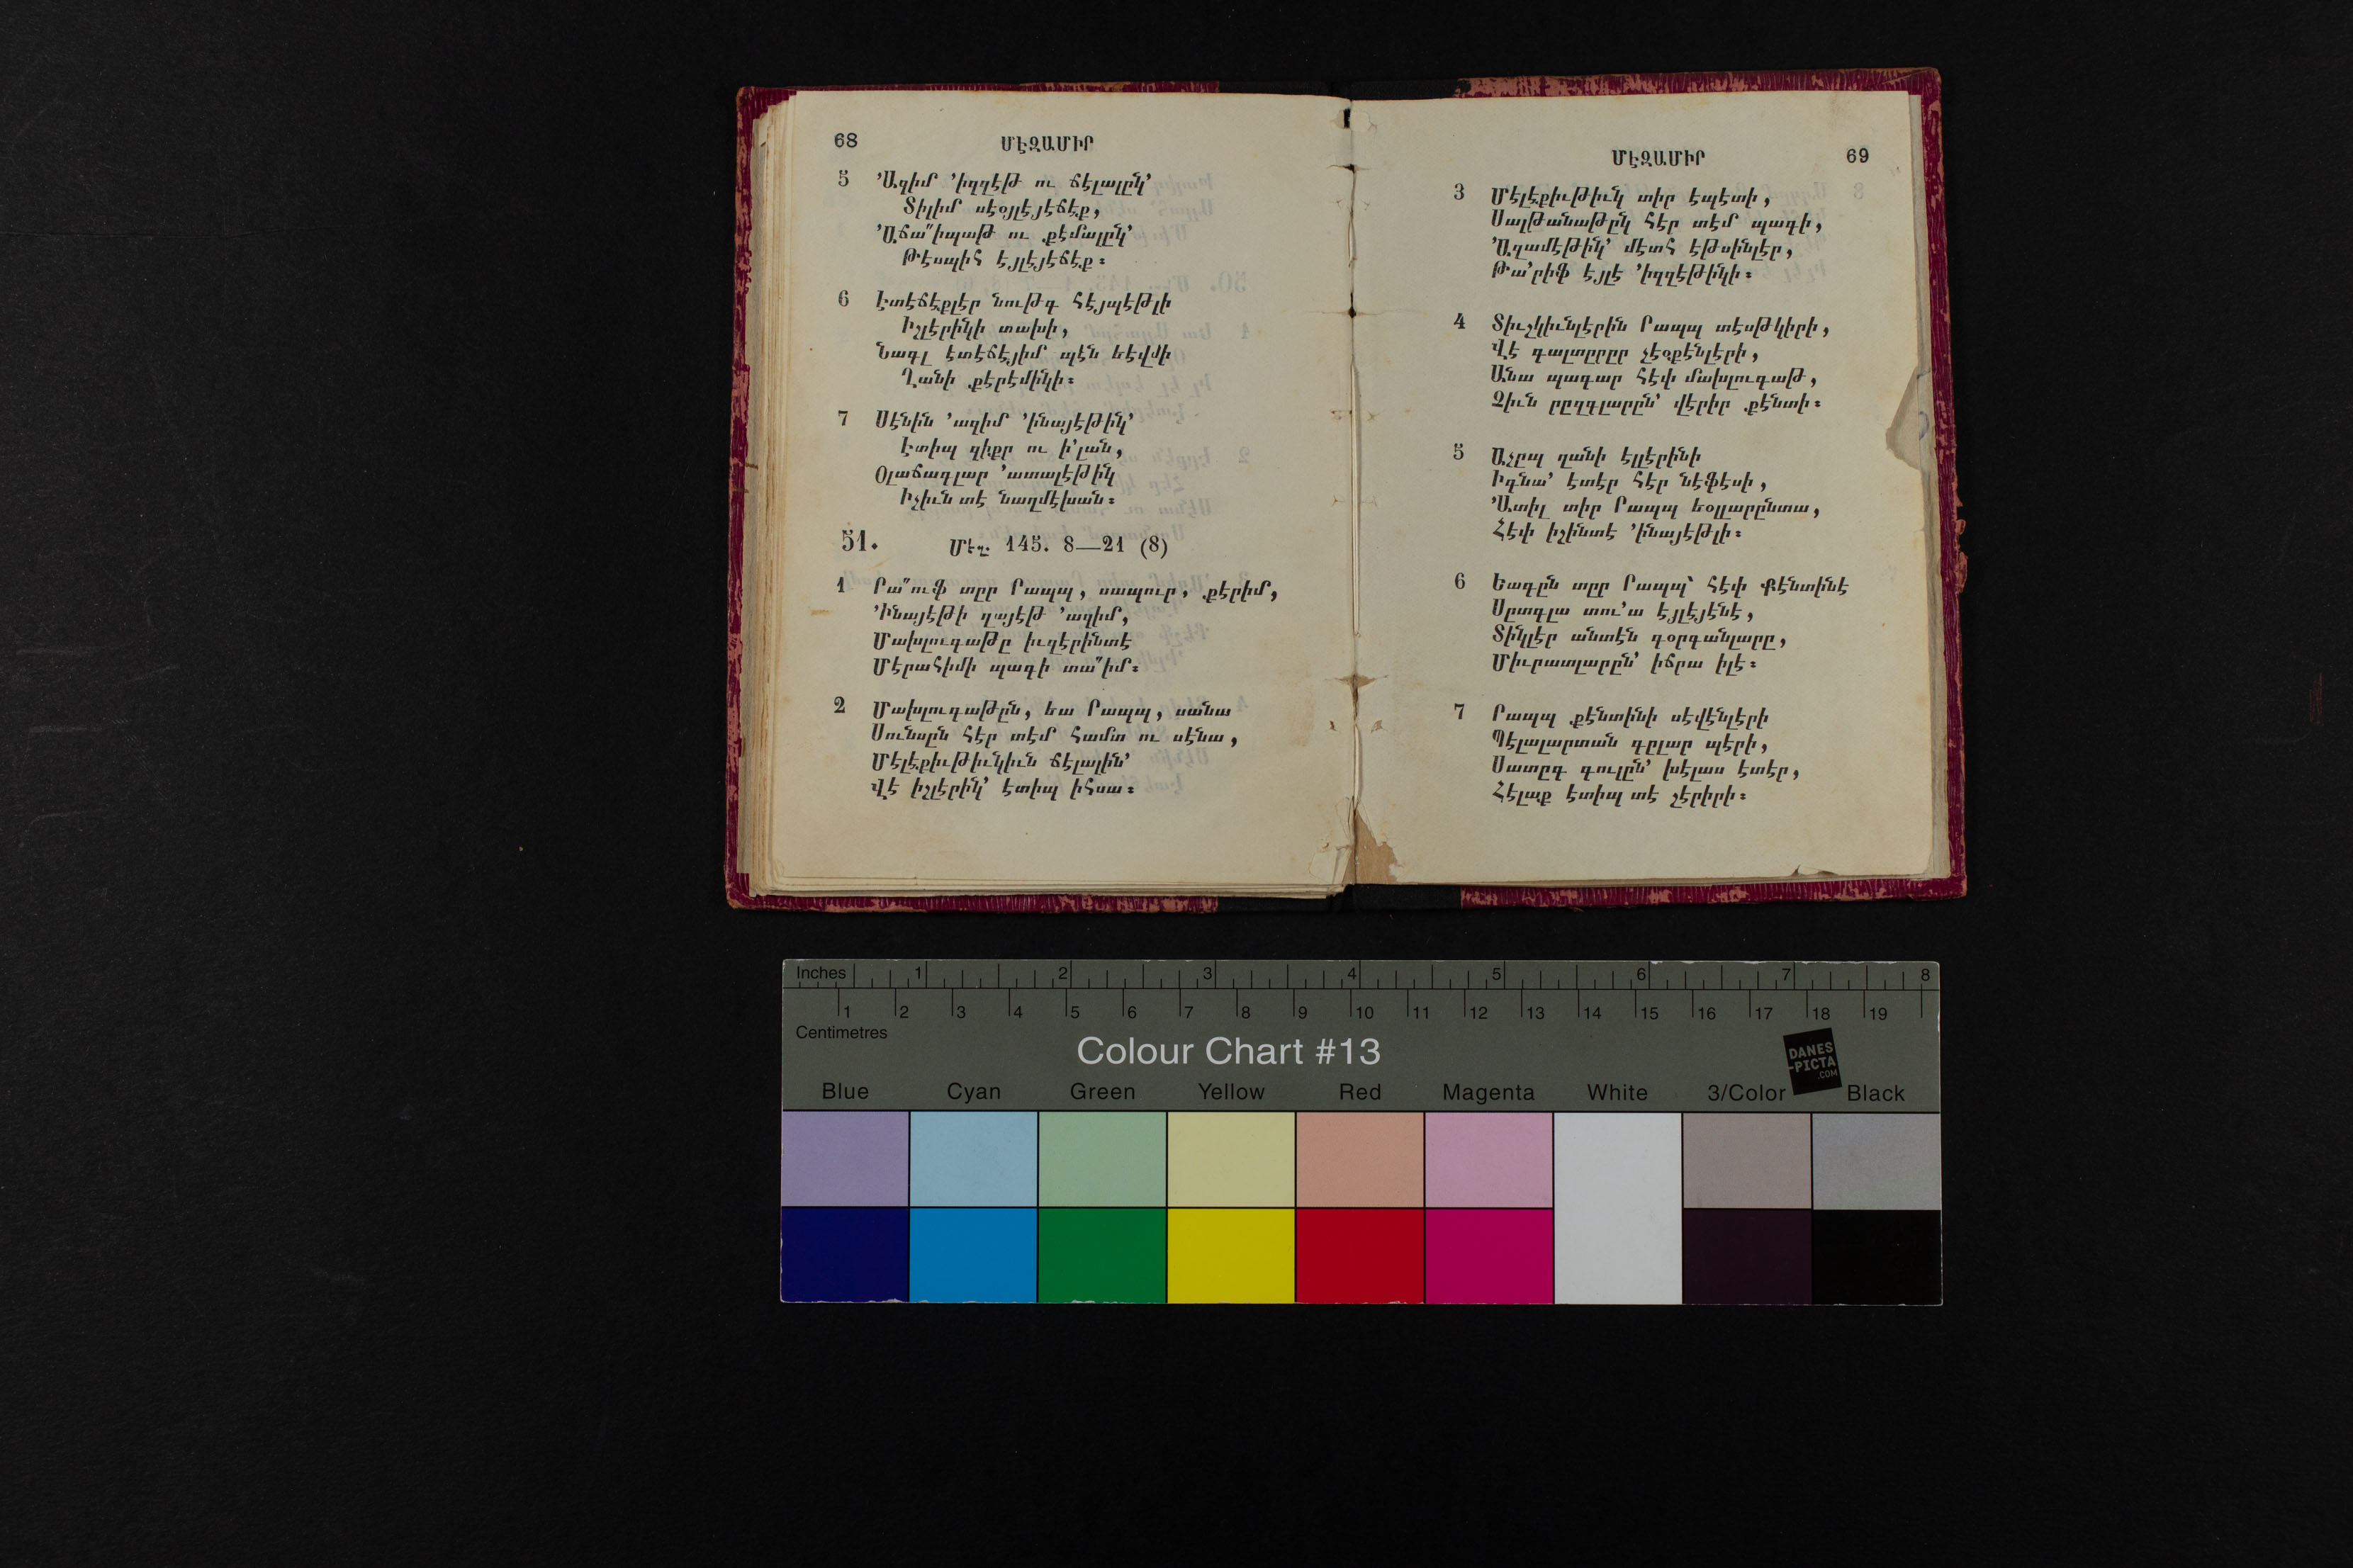 68
ՄԷԶԱՄԻՐ
5 ’Ազիմ ’իզզէթ ու ճէլալըկ՚
Տիլիմ սէօյլէյէճէք,
’Աճա՞իպաթ ու քէմալըկ՚
Թէսպիհ էյլէյէճէք։
6 Էտէճէքլէր նութգ հէյպէթլի
Իշլէրիկի տախի,
Նագլ էտէճէյիմ պէն եէվմի
Ղանի քէրէմիկի։
7 Սէնին ’ազիմ ’ինայէթիկ՚
Էտիպ զիքր ու ի՛լան,
Օլաճագլար ’ատալէթիկ
Իչիւն տէ նաղմէխան։
51. Մեզ. 145. 8—21 (8)
1 Րա՞ուֆ տըր Րապպ, սապուր, քէրիմ,
’Ինայէթի ղայէթ ’ազիմ,
Մախլուգաթը իւզէրինտէ
Մէրահիմի պագի տա՞իմ։
2 Մախլուգաթըն, եա Րապպ, սանա
Սունսըն հէր տէմ համտ ու սէնա,
Մէլէքիւթիւկիւն ճէլալին՚
Վէ իշլէրիկ՚ էտիպ իհսա։
ՄԷԶԱՄԻՐ
69
3 Մէլէքիւթիւկ տիր էպէտի,
Սալթանաթըկ հէր տէմ պագի,
’Ազամէթիկ՚ մէտհ էթսինլէր,
Թա՛րիֆ էյլէ ’իզզէթիկի։
4 Տիւշկիւնլէրին Րապպ տէսթկիրի,
Վէ գալտըրըր չէօքէնլէրի,
Անա պագար հէփ մախլուգաթ,
Զիւն րըզգլարըն՚ վէրիր քէնտի։
5 Աչըպ ղանի էլլէրինի
Իգնա՛ էտէր հէր նէֆէսի,
’Ատիլ տիր Րապպ եօլլարընտա,
Հէփ իշինտէ ’ինայէթլի։
6 Եագըն տըր Րապպ՝ հէփ Քէնտինէ
Սըտգլա տու՛ա էյլէյէնէ,
Տինլէր անտէն գօրգանլարը,
Միւրատլարըն՚ իճրա իլէ։
7 Րապպ քէնտինի սէվէնլէրի
Պէլալարտան գըլար պէրի,
Սատըգ գուլըն՚ խէլաս էտէր,
Հէլաք էտիպ տէ շէրիրի։
Inches 1 2 3 4 5 6 7 8
1 2 3 4 5 6 7 8 9 10 11 12 13 14 15 16 17 18 19
Centimetres
Colour Chart #13
DANES
-PICTA
.COM
Blue Cyan Green Yellow Red Magenta White 3/Color Black